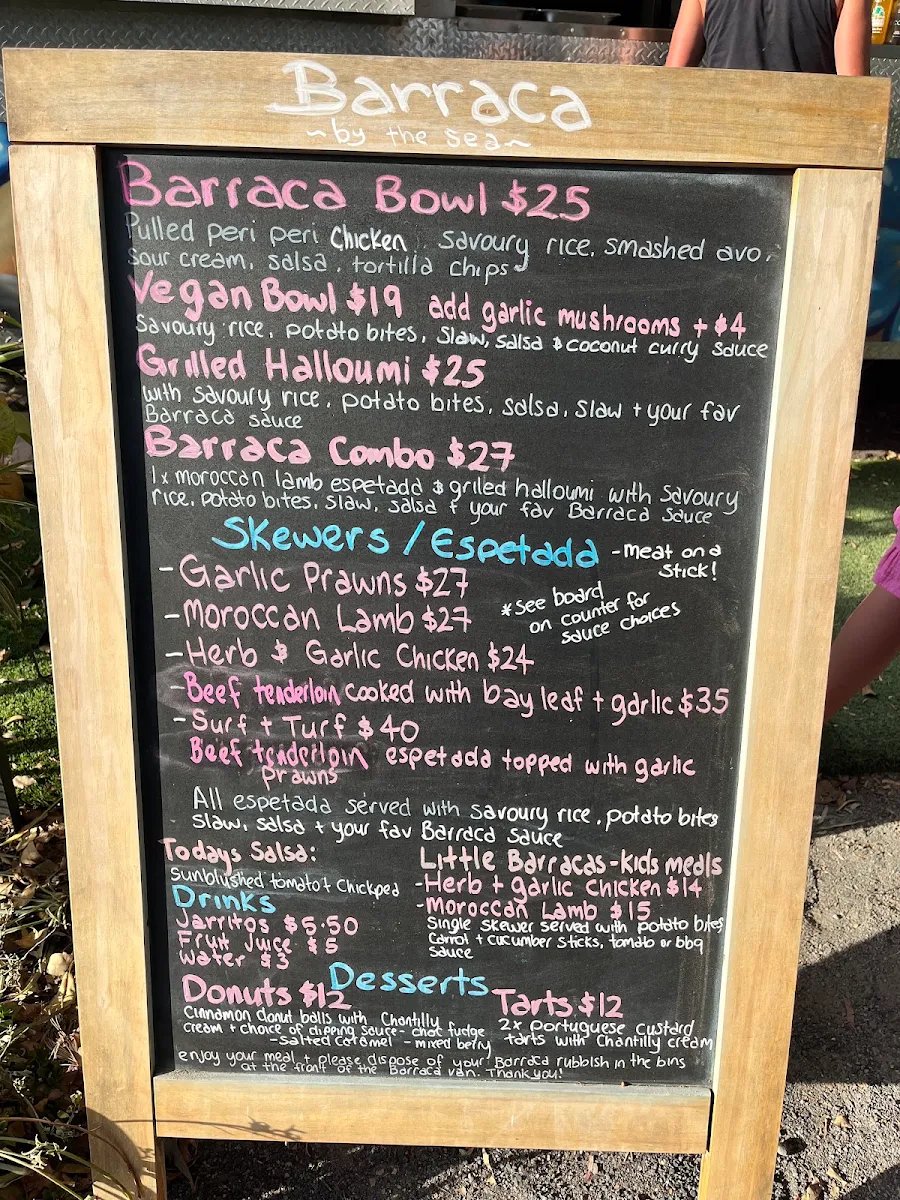 Barraca
~by the sea~
Barraca Bowl $25
Pulled peri peri Chicken, savoury rice, smashed avo,
sour cream, salsa, tortilla chips
Vegan Bowl $19 add garlic mushrooms + $4
Savoury rice, potato bites, slaw, salsa & coconut curry sauce
Grilled Halloumi $25
with savoury rice, potato bites, salsa, slaw + your fav
Barraca sauce
Barraca Combo $27
1x moroccan lamb espetada & grilled halloumi with savoury
rice, potato bites, slaw, salsa + your fav Barraca sauce
Skewers / Espetada - meat on a
stick!
- Garlic Prawns $27
- Moroccan Lamb $27
*See board
on counter for
sauce choices
- Herb & Garlic Chicken $24
- Beef tenderloin cooked with bay leaf + garlic $35
- Surf + Turf $40
Beef tenderloin espetada topped with garlic
prawns
All espetada served with savoury rice, potato bites
slaw, salsa + your fav Barraca sauce
Todays Salsa:
Sunblushed tomato + Chickpea
Drinks
Jarritos $5.50
Fruit Juice $5
Water $3
Little Barracas - kids meals
- Herb + garlic chicken $14
- Moroccan Lamb $15
Single skewer served with potato bites
Carrot + cucumber sticks, tomato or bbq
sauce
Desserts
Donuts $12
Cinnamon donut balls with Chantilly
cream + choice of dipping sauce - choc fudge
- salted caramel - mixed berry
Tarts $12
2x portuguese custard
tarts with Chantilly cream
enjoy your meal + please dispose of your Barraca rubbish in the bins
at the front of the Barraca van. Thank you!